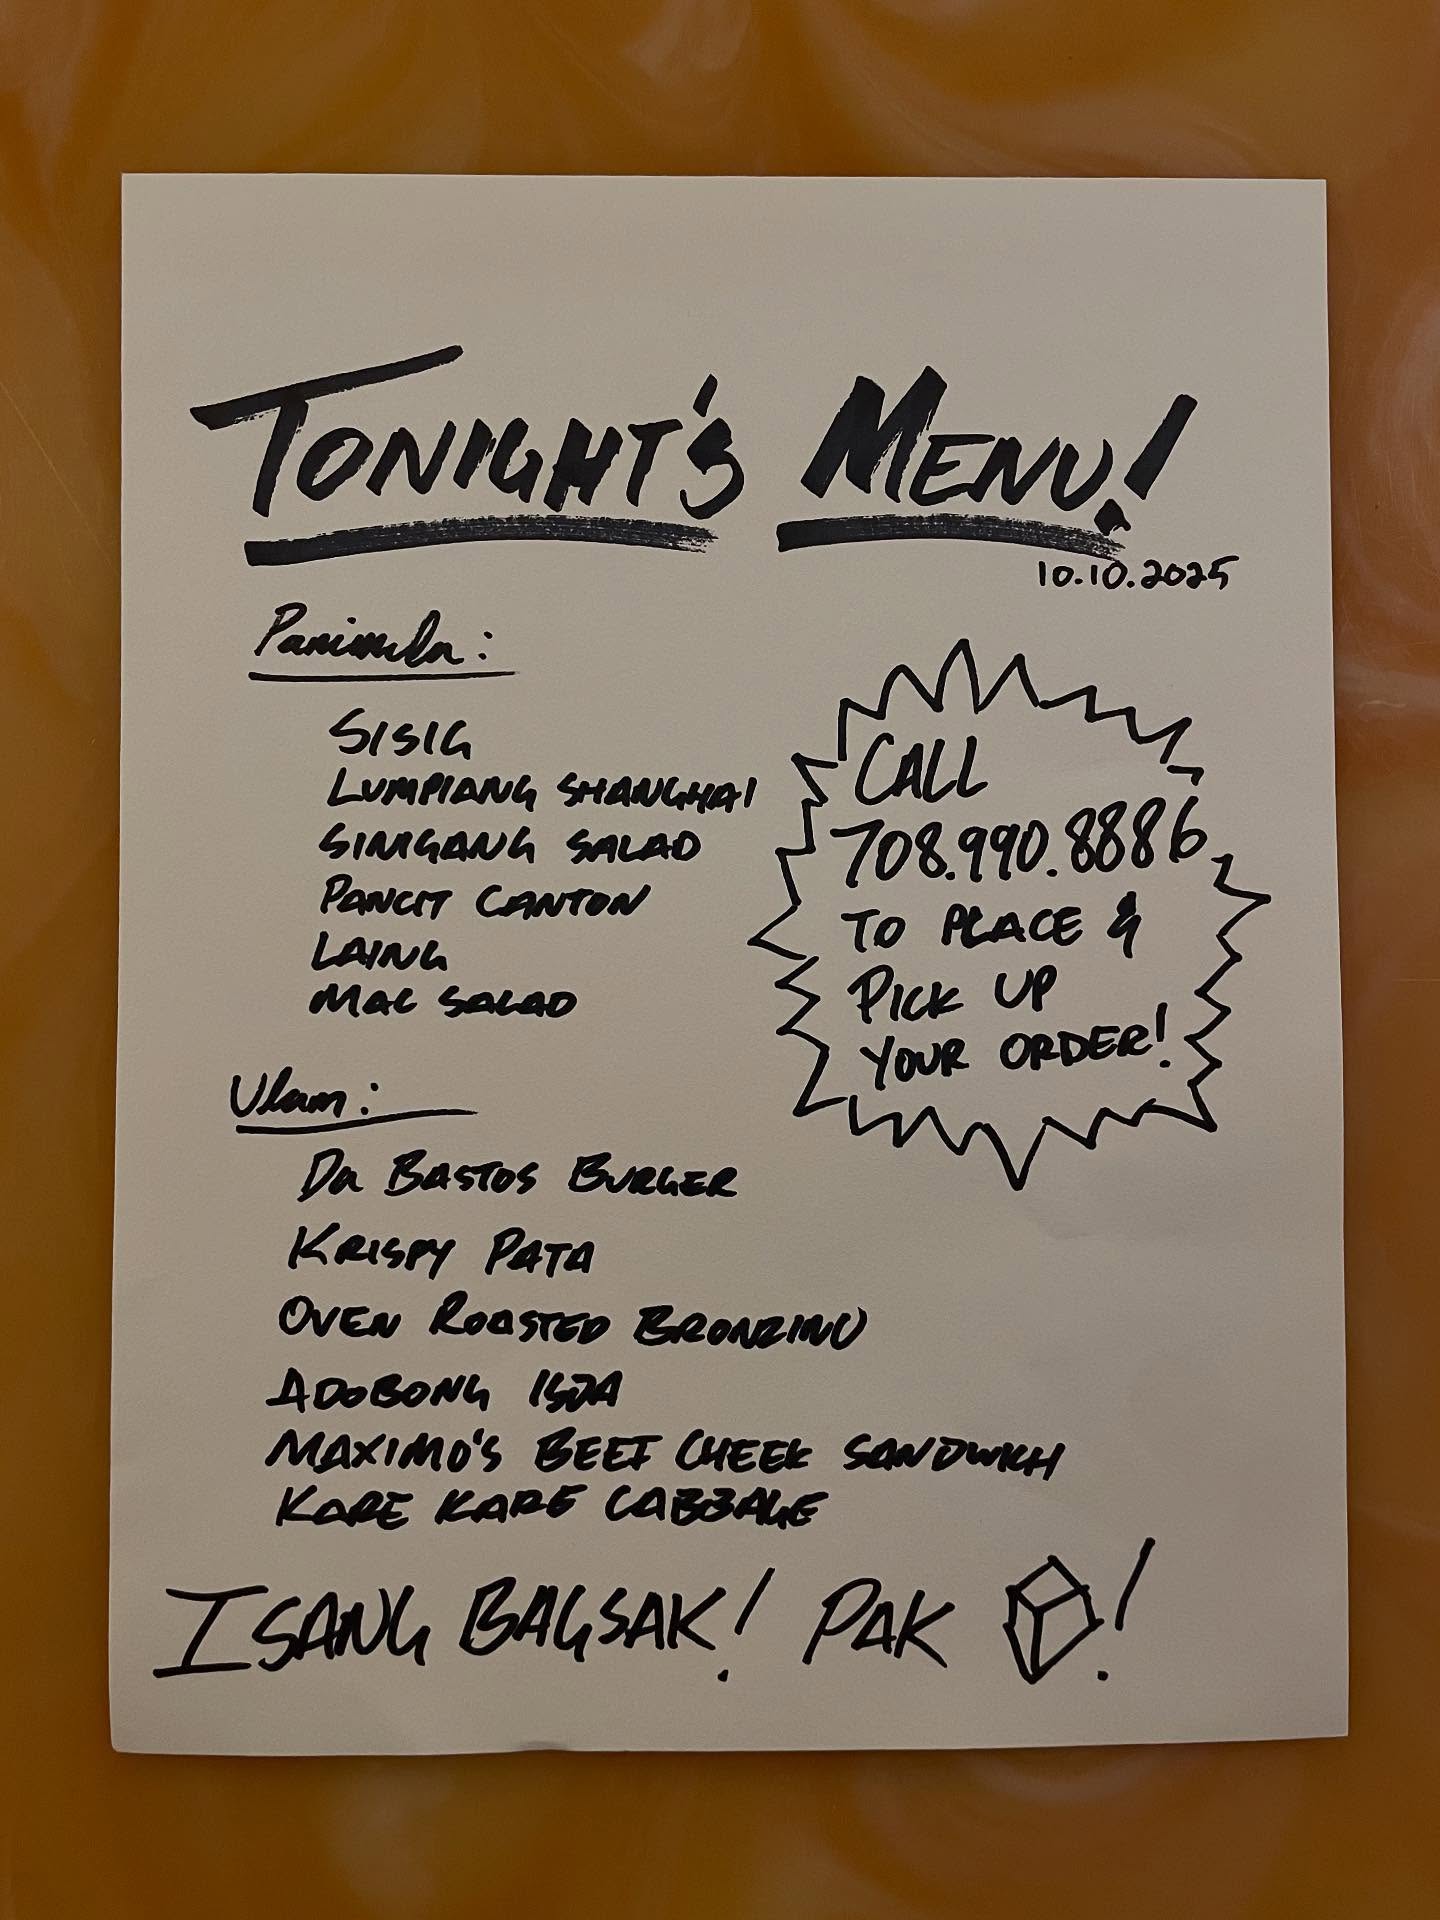 TONIGHT'S MENU!
10.10.2025
Panimula:
SISIG
LUMPIANG SHANGHAI
SINIGANG SALAD
PANCIT CANTON
LAING
MAC SALAD
CALL
708.990.8886
TO PLACE &
PICK UP
YOUR ORDER!
Ulam:
DA BASTOS BURGER
KRISPY PATA
OVEN ROASTED BRONZINO
ADOBONG ISDA
MAXIMO'S BEEF CHEEK SANDWICH
KARE KARE CABBAGE
ISANG BAGSAK! PAK !